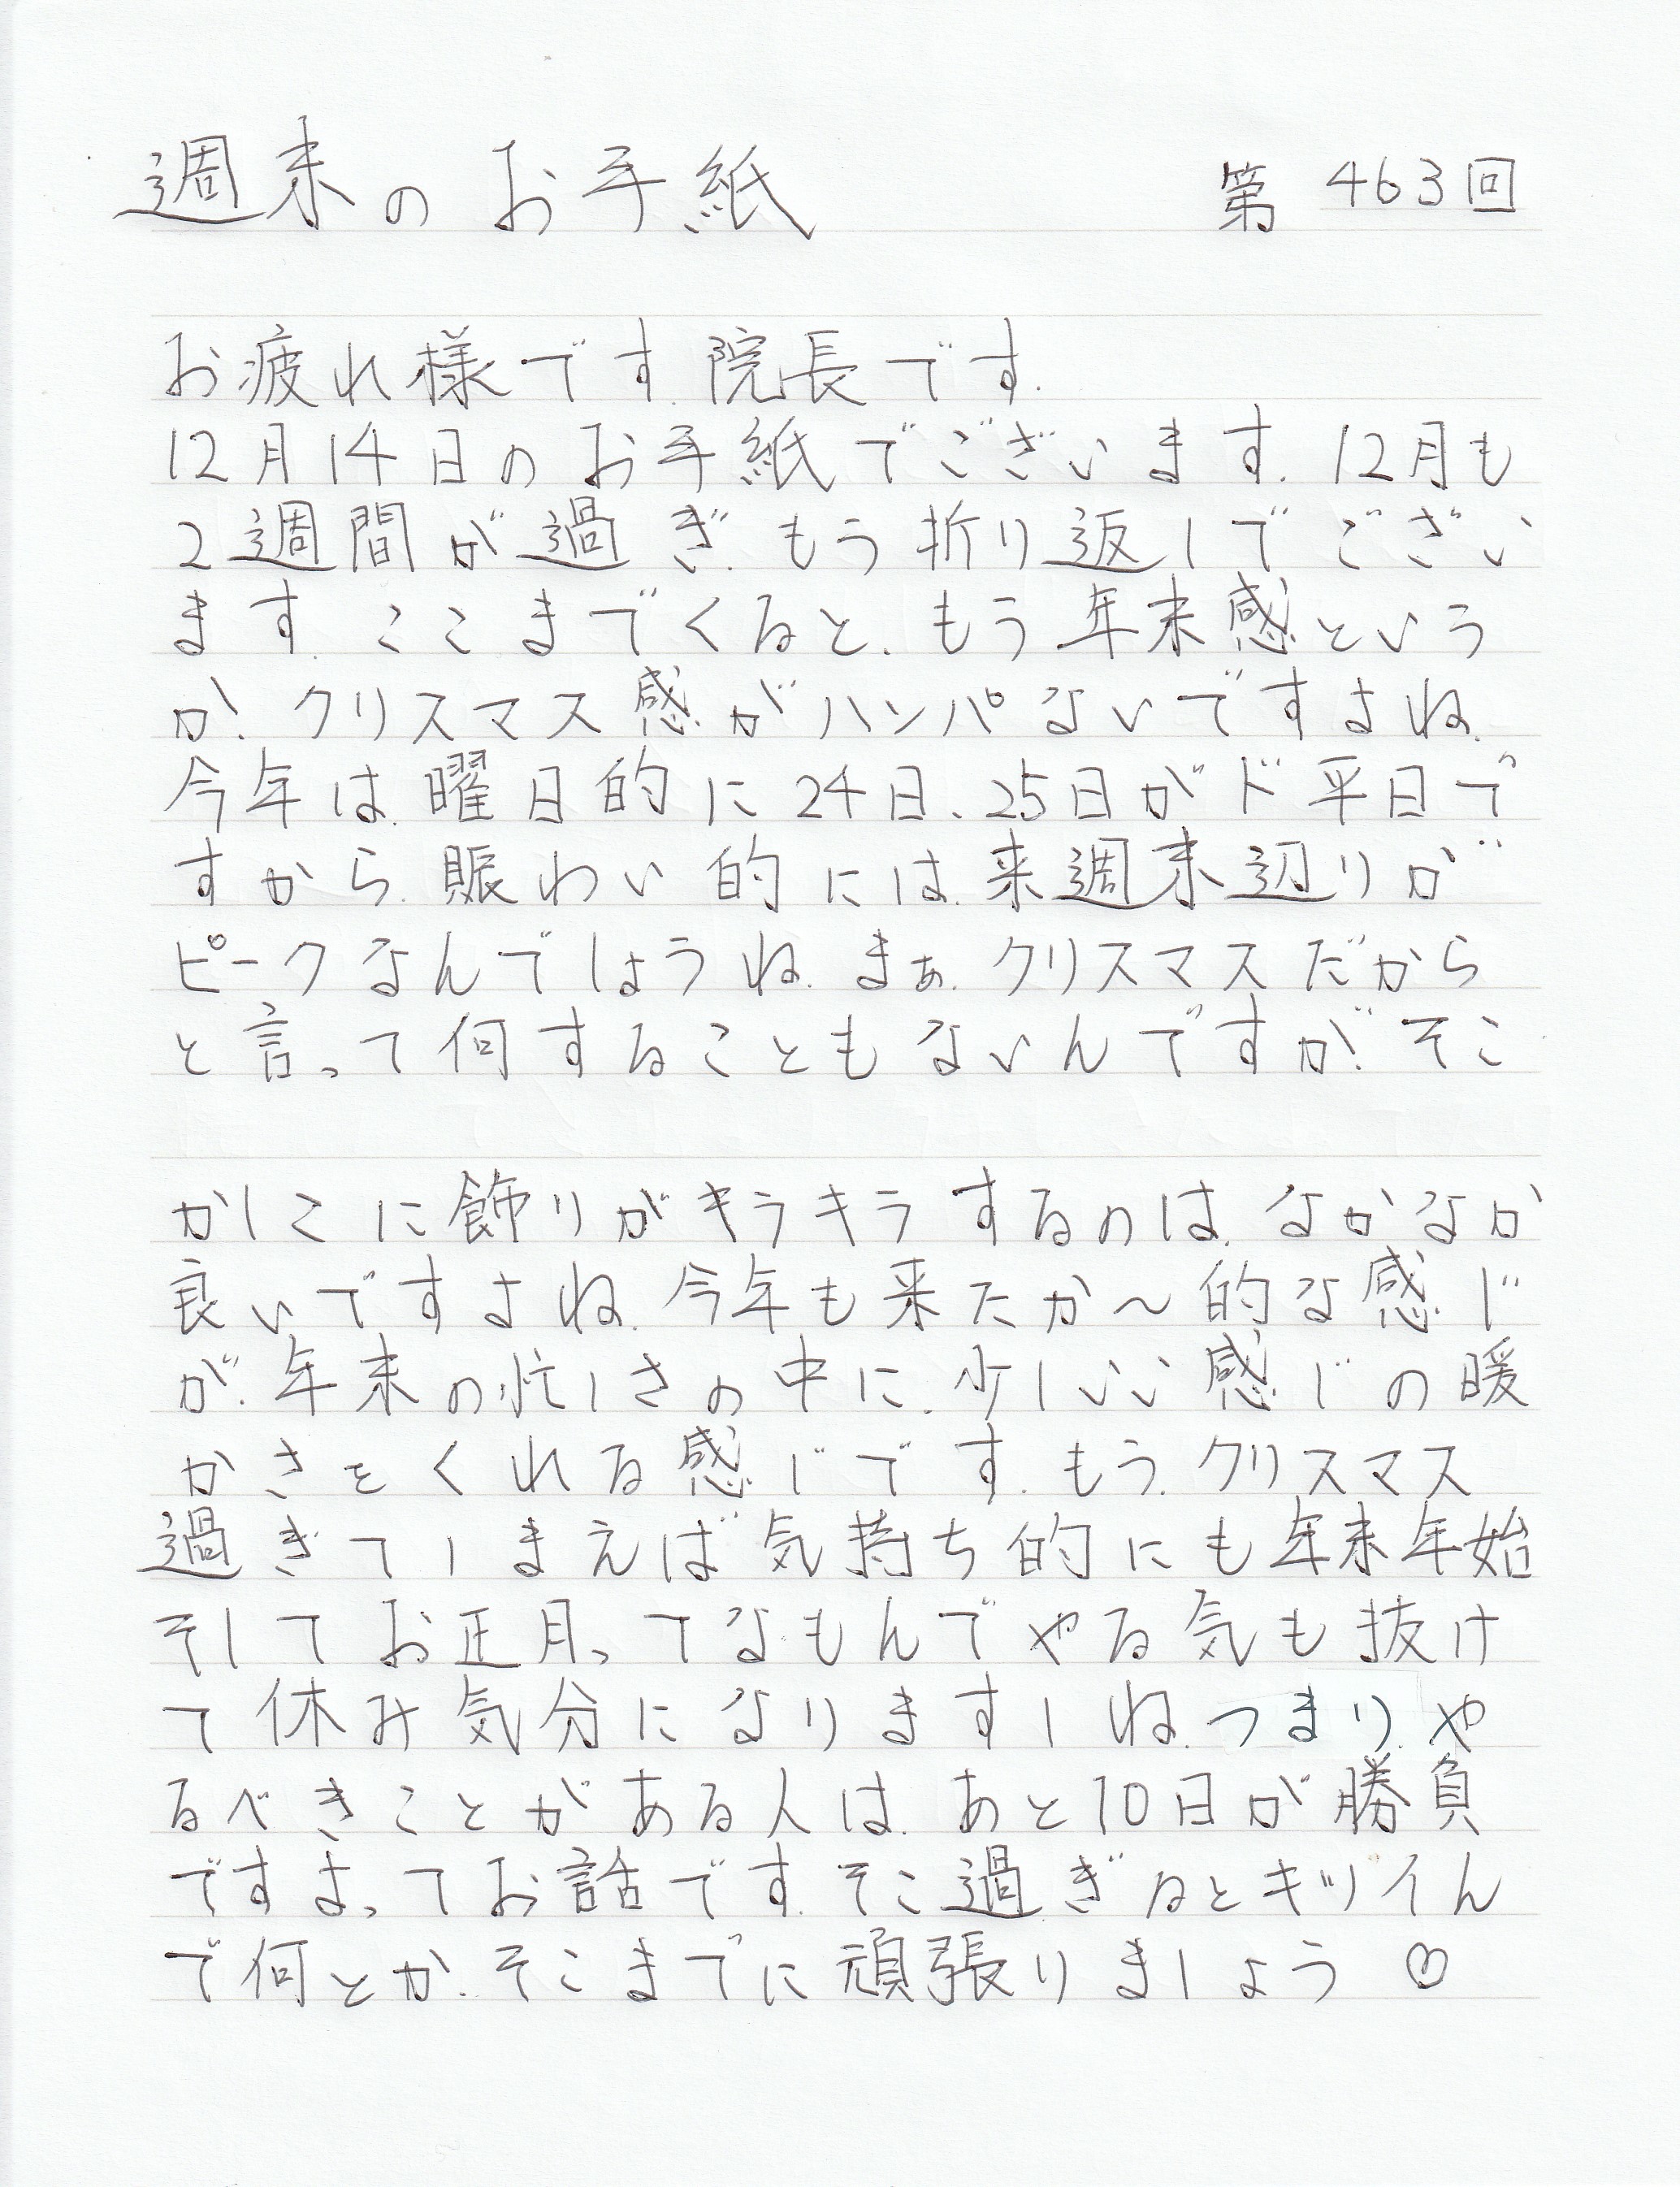 週末のお手紙 第463回
お疲れ様です.院長です.
12月14日のお手紙でございます.12月も
2週間が過ぎ.もう折り返しでござい
ます.ここまでくると.もう年末感という
か.クリスマス感がハンパないですよね.
今年は.曜日的に24日、25日がド平日で
すから.賑わい的には.来週末辺りが
ピークなんでしょうね.まぁ.クリスマスだから
と言って何することもないんですが.そこ
かしこに飾りがキラキラするのは.なかなか
良いですよね.今年も来たか〜的な感じ
が.年末の忙しさの中に.少しいい感じの暖
かさをくれる感じです.もう.クリスマス
過ぎてしまえば気持ち的にも年末年始
そしてお正月ってなもんでやる気も抜け
て休み気分になりますしね.つまり.や
るべきことがある人は.あと10日が勝負
ですよってお話です.そこ過ぎるとキツイん
で何とか.そこまでに頑張りましょう♡